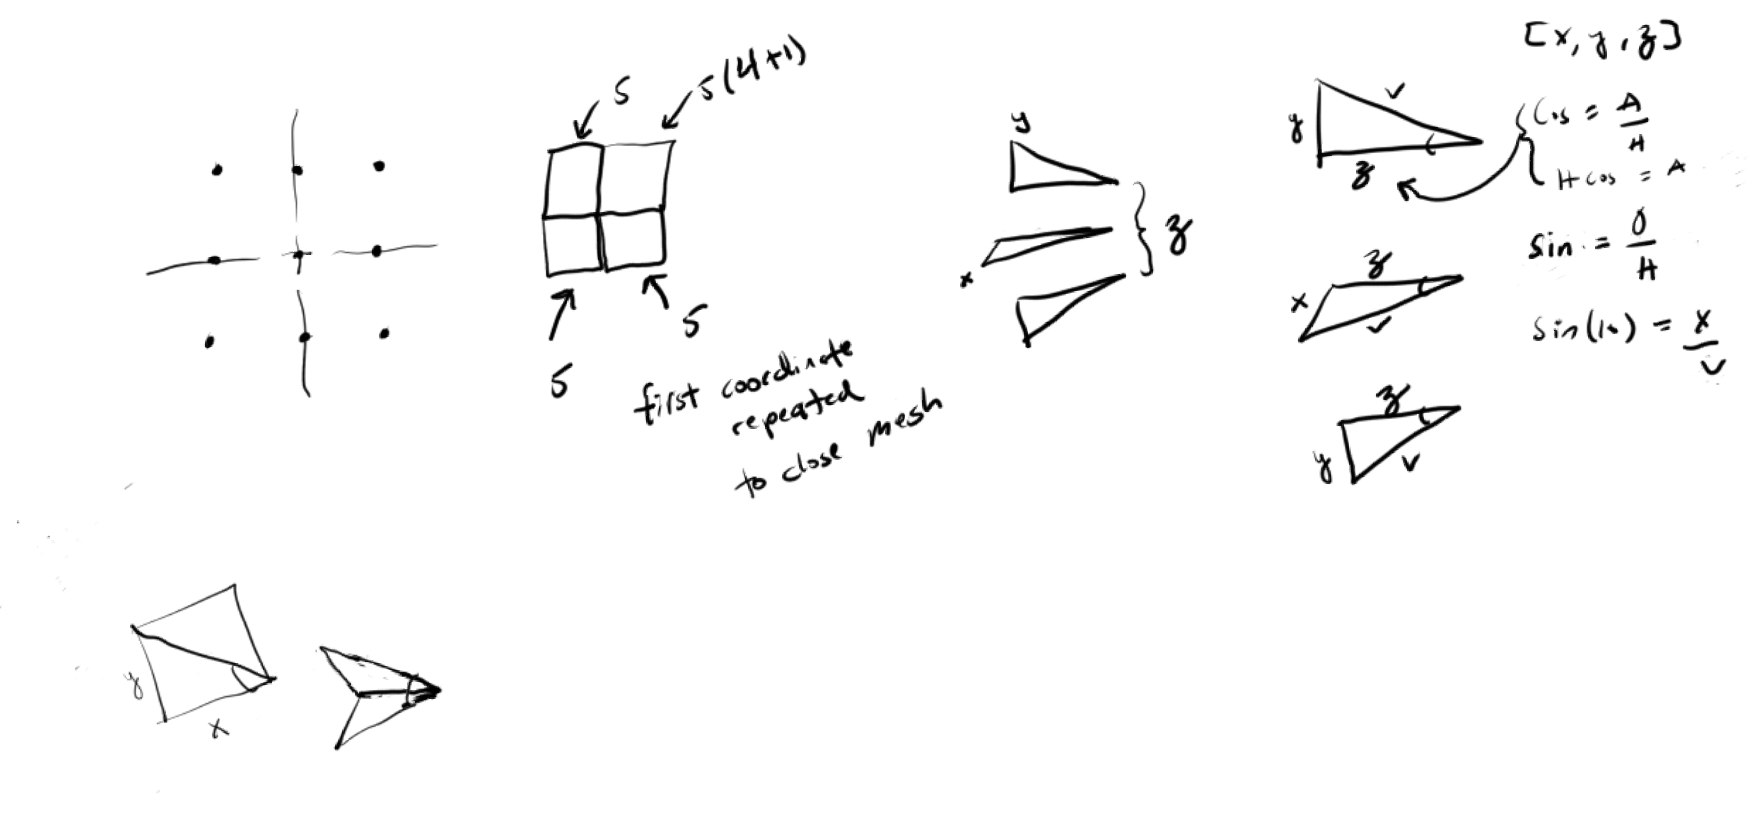 5
5(4+1)
5
5
first coordinate
repeated
to close mesh
y
x
z
y
v
z
z
x
v
z
y
v
[x, y, z]
Cos = A/H
H cos = A
Sin = O/H
Sin(10) = x/v
y
x